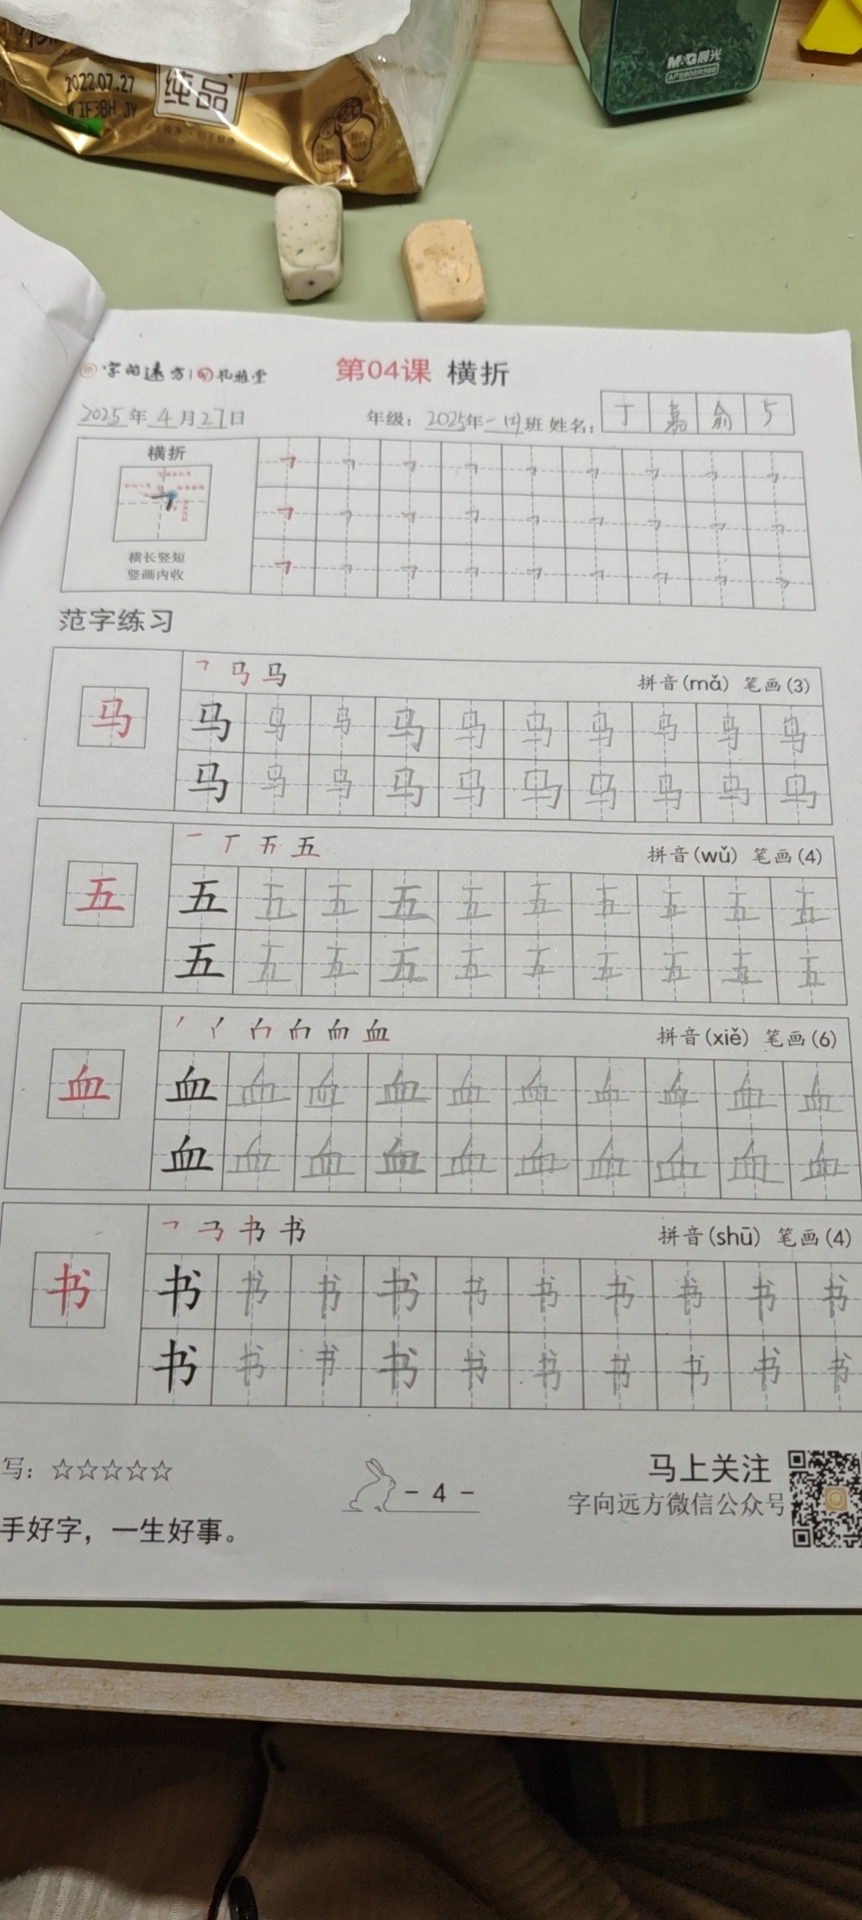 2022.07.27
纯品
M&G晨光
字向远方
第04课 横折
2025年4月27日
年级：2025年一四班 姓名：丁嘉俞
横折
横长竖短
竖画内收
范字练习
马 马
拼音(mǎ) 笔画(3)
马
马 马 马 马 马 马 马 马 马 马
马 马 马 马 马 马 马 马 马 马
五
拼音(wǔ) 笔画(4)
五
五 五 五 五 五 五 五 五 五 五
五 五 五 五 五 五 五 五 五 五
血
拼音(xiě) 笔画(6)
血
血 血 血 血 血 血 血 血 血 血
血 血 血 血 血 血 血 血 血 血
书 书
拼音(shū) 笔画(4)
书
书 书 书 书 书 书 书 书 书 书
书 书 书 书 书 书 书 书 书 书
写：☆☆☆☆☆
- 4 -
马上关注
字向远方微信公众号
手好字，一生好事。